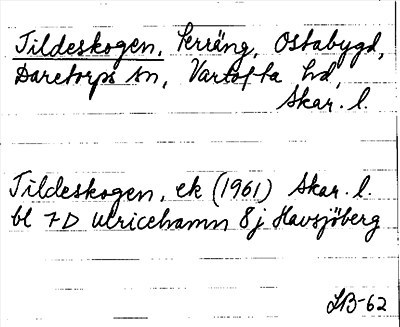 Tildeskogen, Terräng, Ostabygd,
Daretorps sn, Vartofta hd,
Skar. l.
Tildeskogen, ek (1961) Skar. l.
bl 7D Ulricehamn 8j Havsjöberg
LB-62